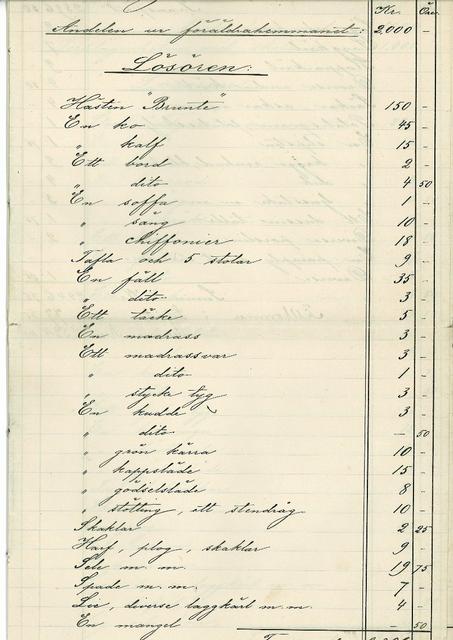 Kr. Öre
Andelen ur föräldrahemmanet: 2,000 –
Lösören:
Hästen "Brunte" 150 –
En ko 45 –
" kalf 15 –
Ett bord 2 –
" dito 4 50
En soffa 1 –
" säng 10 –
" chiffonier 18 –
Tafla och 5 stolar 9 –
En fäll 35 –
" dito 3 –
Ett täcke 5 –
En madrass 3 –
Ett madrassvar 3 –
" dito 1 –
" stycke tyg 3 –
En kudde 3 –
" dito – 50
" grön kärra 10 –
" kappsläde 15 –
" gödselsläde 8 –
" stötting, ett stendrag 10 –
Skaklar 2 25
Harf, plog, skaklar 9 –
Sele m. m. 19 75
Spade m. m. 7 –
Lie, diverse laggkärl m. m. 4 –
En mangel – 50